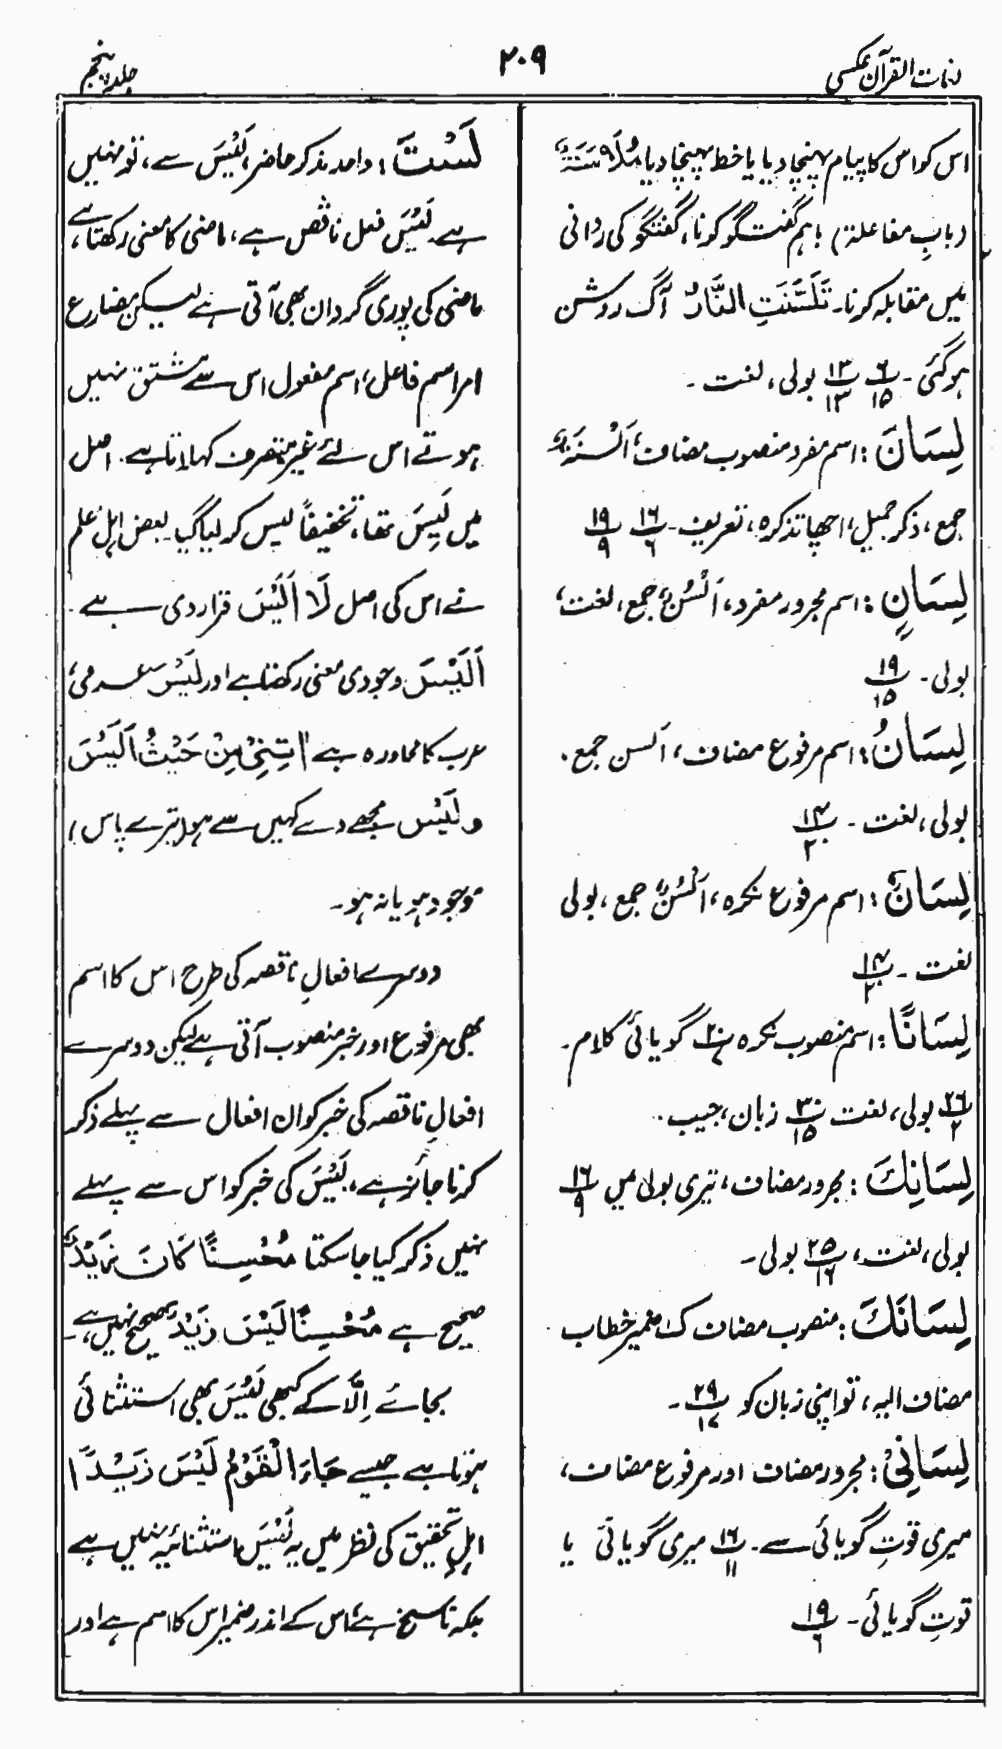 لغات القرآن عکسی
۲۰۹
جلد پنجم
اس کو اس کا پیام پہنچا دیا یا خط پہنچا دیا مُلَاسَنَۃٌ
(بابِ مفاعلۃ) باہم گفت گو کرنا، گفتگو کی روانی
میں مقابلہ کرنا۔ تَلَسَّنَتِ النَّارُ آگ روشن
ہوگئی۔ ۶/۱۵ ۱۳/۱۳ بولی، لغت۔
لِسَانَ: اسم مفرد منصوب مضاف، اَلْسِنَۃٌ
جمع، ذکر جمیل، اچھا تذکرہ، تعریف۔ ۱۶/۶ ۱۹/۹
لِسَانٍ: اسم مجرور مفرد، اَلْسُنٌ جمع، لغت،
بولی۔ ۱۹/۱۵
لِسَانُ: اسم مرفوع مضاف، اَلسن جمع۔
بولی، لغت۔ ۱۴/۲۰
لِسَانٌ: اسم مرفوع نکرہ، اَلْسُنٌ جمع، بولی
لغت۔ ۱۴/۲۰
لِسَانًا: اسم منصوب نکرہ گویائی کلام۔
۲۶/۲ بولی، لغت ۳۰/۱۵ زبان، جیب۔
لِسَانِكَ: مجرور مضاف، تیری بولی میں ۱۶/۹
بولی، لغت، ۲۵/۱۶ بولی۔
لِسَانَكَ: منصوب مضاف ک ضمیر خطاب
مضاف الیہ، تو اپنی زبان کو ۲۹/۱۷۔
لِسَانِیْ: مجرور مضاف اور مرفوع مضاف،
میری قوتِ گویائی سے۔ ۱۶/۱۱ میری گویائی یا
قوتِ گویائی۔ ۱۹/۶
لَسْتَ: واحد مذکر حاضر، لَیْسَ سے، تو نہیں
ہے۔ لَیْسَ فعل ناقص ہے، ماضی کا معنی رکھتا ہے،
ماضی کی پوری گردان بھی آتی ہے لیکن مضارع
امر اسم فاعل، اسم مفعول اس سے مشتق نہیں
ہوتے اس لئے غیر متصرف کہلاتا ہے۔ اصل
میں لَیِسَ تھا، تخفیفاً لیس کر لیا گیا۔ بعض اہلِ علم
نے اس کی اصل لَا اَیْسَ قرار دی ہے
اَیْسَ وجودی معنی رکھتا ہے اور لَیْسَ عدمی،
عرب کا محاورہ ہے اتِنِیْ مِنْ حَیْثُ اَیْسَ
و لَیْسَ مجھے دے کہیں سے ہو (تیرے پاس)
موجود ہو یا نہ ہو۔
دوسرے افعالِ ناقصہ کی طرح اس کا اسم
بھی مرفوع اور خبر منصوب آتی ہے لیکن دوسرے
افعالِ ناقصہ کی خبر کو ان افعال سے پہلے ذکر
کرنا جائز ہے، لَیْسَ کی خبر کو اس سے پہلے
نہیں ذکر کیا جا سکتا مُحْسِنًا كَانَ زَیْدٌ
صحیح ہے مُحْسِنًا لَیْسَ زَیْدٌ صحیح نہیں ہے۔
بجائے اِلَّا کے کبھی لَیْسَ بھی استثنائی
ہوتا ہے جیسے جَاءَ الْقَوْمُ لَیْسَ زَیْدًا
اہلِ تحقیق کی نظر میں یہ لَیْسَ استثنائیہ نہیں ہے
بلکہ ناسخ ہے، اس کے اندر ضمیر اس کا اسم ہے اور